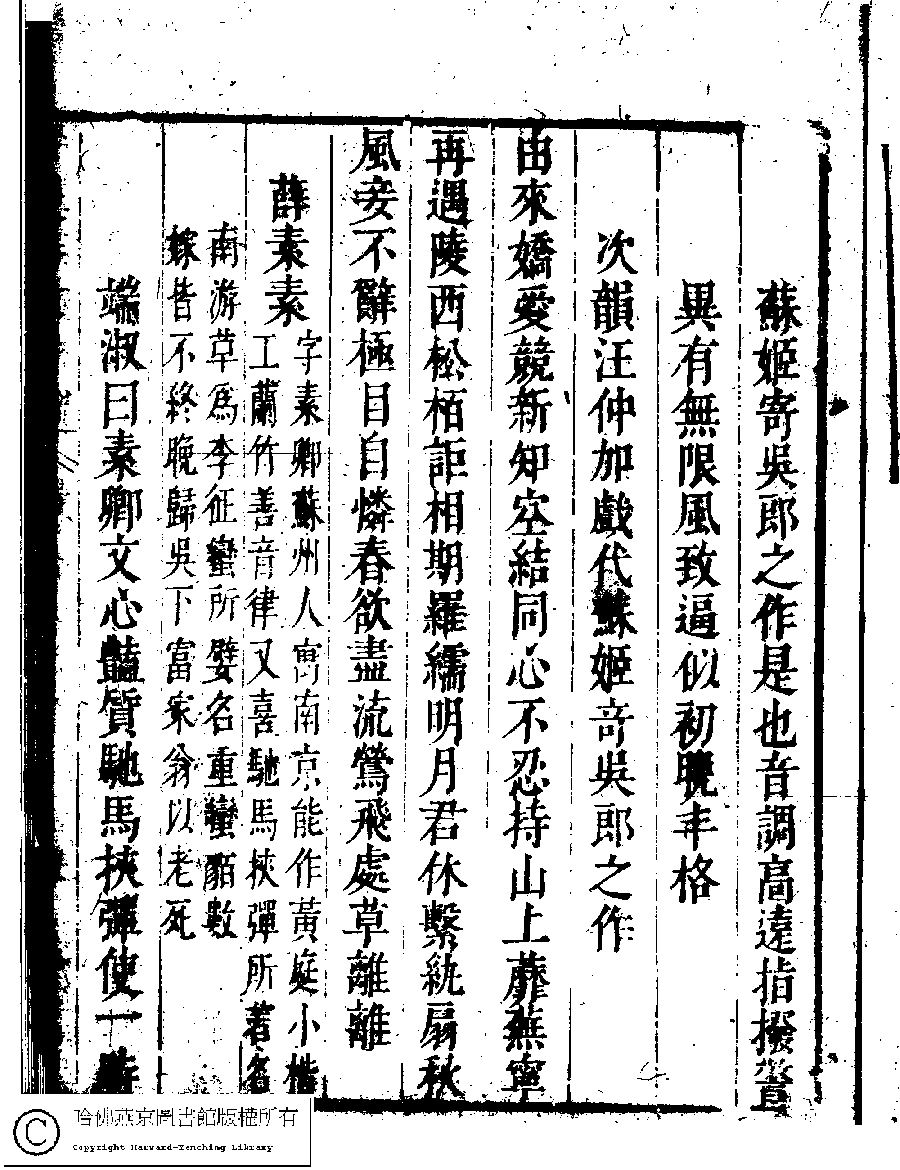 蘇姬寄吳郎之作是也音調高遠指撥
異有無限風致逼似初晚丰格
次韻汪仲加戲代蘇姬寄吳郎之作
由來嬌愛競新知空結同心不忍持山上蘼蕪寧
再遇陵西松栢詎相期羅繻明月君休繫紈扇秋
風妾不辭極目自憐春欲盡流鶯飛處草離離
薛素素
字素卿蘇州人寓南京能作黃庭小楷
工蘭竹善音律又喜馳馬挾彈所著名
南游草爲李征蠻所嬖名重蠻貊數
嫁皆不終晚歸吳下富家翁以老死
端淑曰素卿文心豔質馳馬挾彈使一時
哈佛燕京圖書館版權所有
Copyright Harvard-Yenching Library